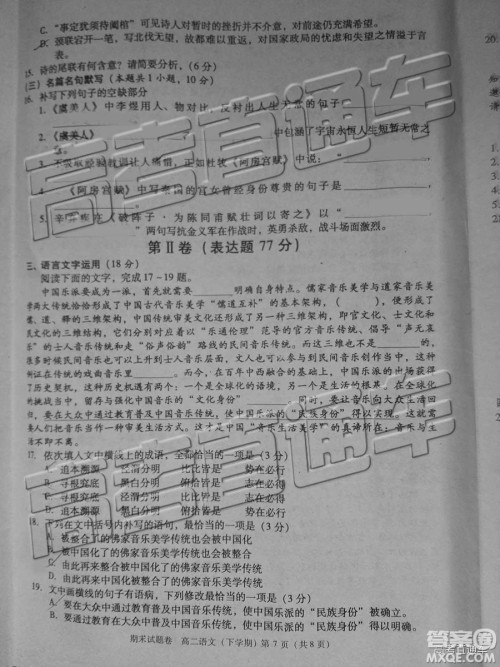 C. “事定犹须待阖棺”可见诗人对暂时的挫折并不介意，对前途仍充满希望。
D. 颈联忽发奇想，写北伐无望，故都难以重返，对国家政局的忧虑和失望之情溢于言表
15. 诗的尾联有何含意？请简要分析。（6分）
（三）名篇名句默写（本题共1小题，10分）
16. 补写下列句子的空缺部分
1.《虞美人》中李煜用人、物对比，反衬出人生无常的句子是
2.《虞美人》 中包含了宇宙永恒人生短暂无常之
3. 不汲取经验教训让人痛惜，正如杜牧《阿房宫赋》中说：“
4. 《阿房宫赋》中写秦国的宫女曾经身份尊贵的句子是
5. 辛弃疾在《破阵子·为陈同甫赋壮词以寄之》以“
”两句写抗金义军在作战时，英勇杀敌，战斗场面激烈。
第Ⅱ卷（表达题 77分）
三、语言文字运用（18分）
阅读下面的文字，完成17～19题。
中国乐派要成为一派，首先需要 明确自身特点。儒家音乐美学与道家音乐美
学两大传统恰恰形成了中国古代音乐美学“儒道互补”的基本架构，（ ），便形成了
儒、道、释三大传统。中国传统音乐艺术还形成了另一三维架构，即官文化、士文化和
民文化的三维架构。它们分别对应着以“乐通伦理”范导的官方音乐传统、倡导“声无哀
乐”的士人音乐传统和走“俗声俗韵”路线的民间音乐传统。而在中国 的是，
很多时候民间音乐和文人音乐并不 。在百年中西融合的基础上，中国音乐已完成
了历史契机，这种历史机遇有两个：一个是全球化，中国乐派的出现恰恰适应了全球化
背景下中国音乐加强自身的“文化身份” ；一个是生活美学，音乐要面向大众回归生
活。要在大众中通过教育普及中国音乐传统，中国乐派的“民族身份”得以实现。这就要
倡导一种作为人的整体的审美生活方式。这才是中国“音乐生活美学”的大义所在，音乐与生
活本不可分。
17. 依次填入文中横线上的成语，全都恰当的一项是（3分）
A. 追本溯源 泾渭分明 比比皆是 势在必行
B. 寻根究底 黑白分明 俯拾皆是 势在必得
C. 追本溯源 泾渭分明 比比皆是 势在必得
D. 寻根究底 黑白分明 俯拾皆是 势在必行
18. 下列在文中括号内补写的语句，最恰当的一项是（3分）
A. 被整合了的中国化了的佛家音乐美学传统
B. 被中国化了的佛家音乐美学传统也被整合
C. 由此再来整合被中国化了的佛家音乐美学传统
D. 由此再来整合中国化了佛家音乐美学传统
19. 文中画横线的句子有语病，下列修改最恰当的一项是（3分）
A. 要在大众中通过教育普及中国音乐传统，使中国乐派的“民族身份”被得以实现。
B. 要在大众中通过教育普及中国音乐传统，使中国乐派的“民族身份”得以实现。
期末试题卷 高二语文（下学期）第7页（共8页）
高考直通车
高考直通车
高考直通车
答案圈